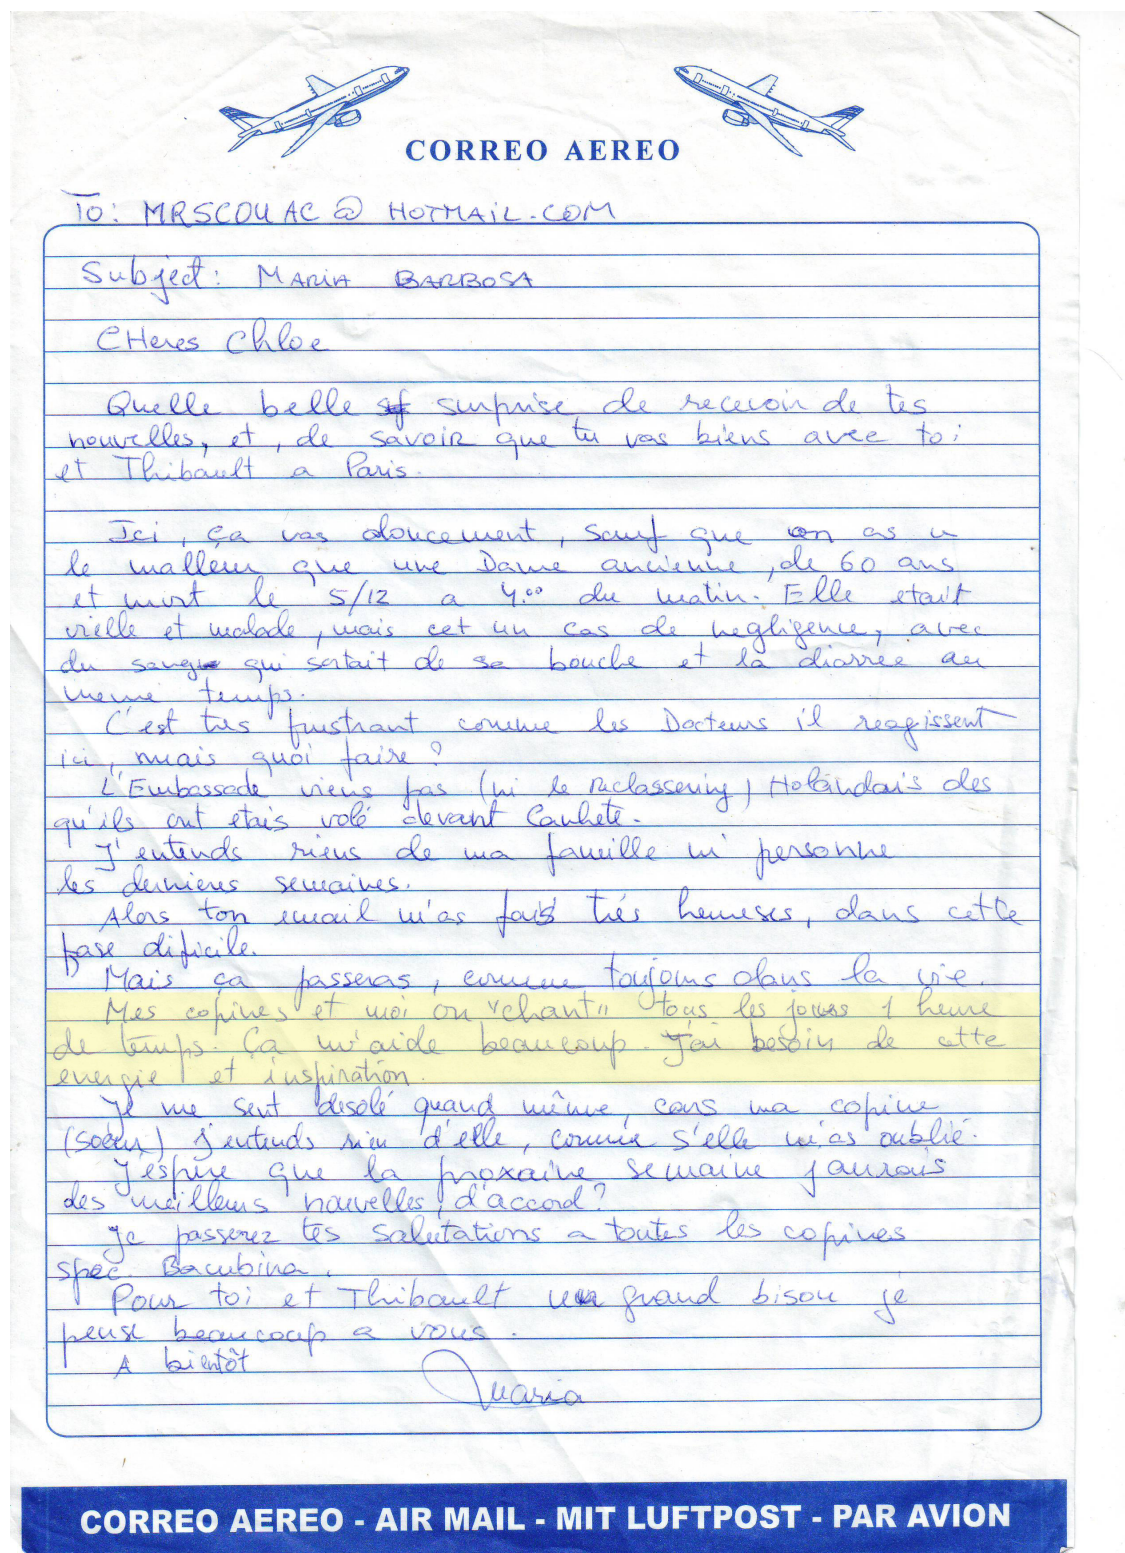 CORREO AEREO
To: MRSCOUAC@HOTMAIL.COM
Subject: MARIA BARBOSA
CHeres Chloe
Quelle belle surprise de recevoir de tes
nouvelles, et, de savoir que tu vas biens avec toi
et Thibault a Paris.
Ici, ça vas doucement, sauf que on as u
le malleur que une Dame ancienne, de 60 ans
et mort le 5/12 a 4.00 du matin. Elle etait
vielle et malade, mais cet un cas de negligence, avec
du sang qui sortait de sa bouche et la diarrée au
meme temps.
C'est tres frustrant comme les Docteurs il reagissent
ici, mais quoi faire?
L'Embassade viens pas (ni le reclassering) Holandais des
qu'ils ont etais volé devant Canhete.
J'entends riens de ma famille ni personne
les dernieres semaines.
Alors ton email m'as fais trés heureses, dans cette
fase dificile.
Mais ça passeras, comme toujours dans la vie.
Mes copines et moi on "chant" tous les jours 1 heure
de temps. Ça m'aide beaucoup. J'ai besoin de cette
energie et inspiration.
Je me sent desolé quand même, cars ma copine
(soeur) j'entends rien d'elle, comme s'elle m'as oublié.
J'espere que la proxaine semaine j'aurais
des meilleurs nouvelles, d'accord?
Je passerez tes salutations a toutes les copines
spec. Bambina.
Pour toi et Thibault un grand bisou je
pense beaucoup a vous.
A bientôt
Maria
CORREO AEREO - AIR MAIL - MIT LUFTPOST - PAR AVION